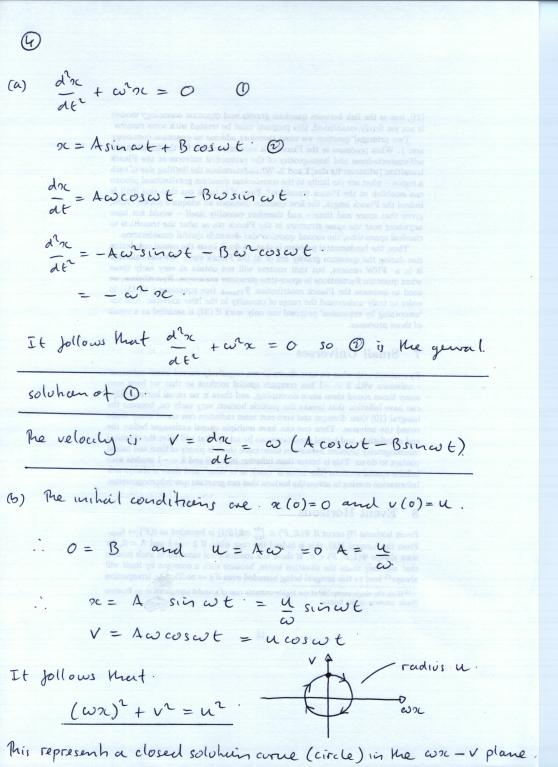 ④
(a) d²x/dt² + ω²x = 0 ①
x = A sin ωt + B cos ωt. ②
dx/dt = Aω cos ωt − Bω sin ωt.
d²x/dt² = −Aω² sin ωt − Bω² cos ωt.
= −ω² x.
It follows that d²x/dt² + ω²x = 0 so ② is the general
solution of ①.
The velocity is V = dx/dt = ω (A cos ωt − B sin ωt)
(b) The initial conditions are x(0)=0 and v(0)=u.
∴ 0 = B and u = Aω ⇒ A = u/ω
∴ x = A sin ωt = u/ω sin ωt.
V = Aω cos ωt = u cos ωt
It follows that.
(ωx)² + v² = u².
V
radius u.
ωx
This represents a closed solution curve (circle) in the ωx − v plane.